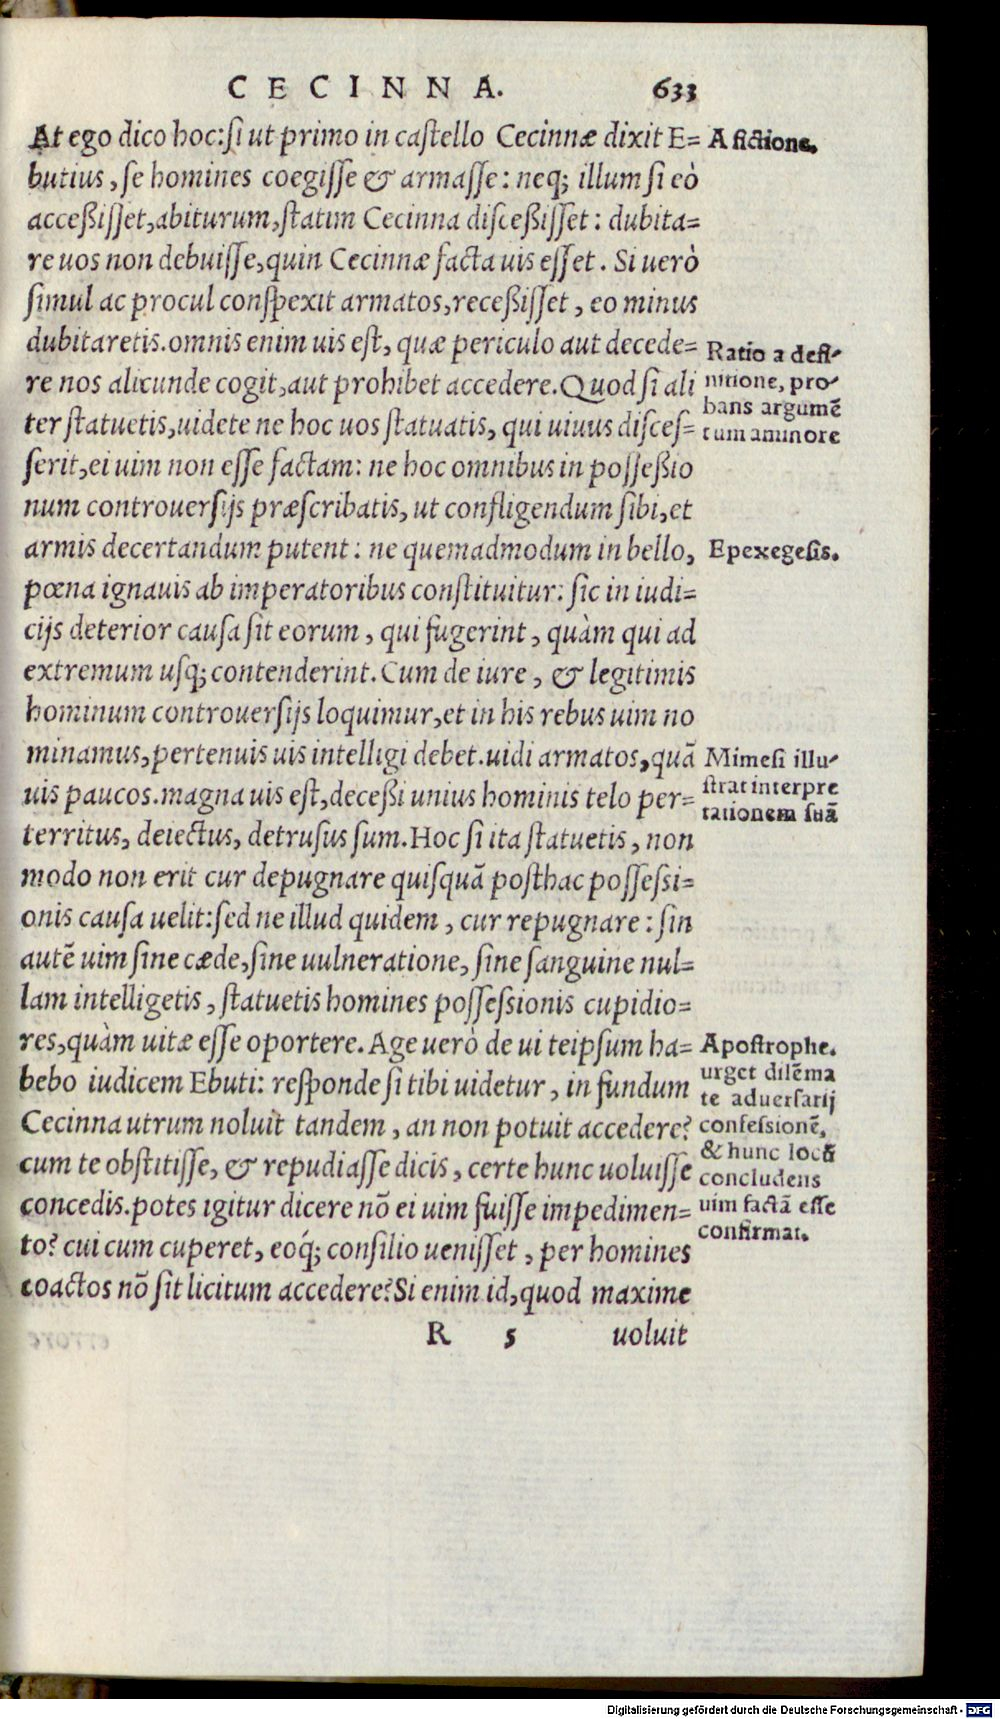 CECINNA. 633
At ego dico hoc: si ut primo in castello Cecinnæ dixit E=
butius, se homines coegisse & armasse: neq; illum si eò
accessisset, abiturum, statim Cecinna discessisset: dubita=
re uos non debuisse, quin Cecinnæ facta uis esset. Si uerò
simul ac procul conspexit armatos, recessisset, eo minus
dubitaretis. omnis enim uis est, quæ periculo aut decede=
re nos alicunde cogit, aut prohibet accedere. Quod si ali
ter statuetis, uidete ne hoc uos statuatis, qui uiuus disces=
serit, ei uim non esse factam: ne hoc omnibus in possessio
num controuersijs præscribatis, ut confligendum sibi, et
armis decertandum putent: ne quemadmodum in bello,
pœna ignauis ab imperatoribus constituitur: sic in iudi=
cijs deterior causa sit eorum, qui fugerint, quàm qui ad
extremum usq; contenderint. Cum de iure, & legitimis
hominum controuersijs loquimur, et in his rebus uim no
minamus, pertenuis uis intelligi debet. uidi armatos, quã
uis paucos. magna uis est, decessi unius hominis telo per=
territus, deiectus, detrusus sum. Hoc si ita statuetis, non
modo non erit cur depugnare quisquã posthac possessi=
onis causa uelit: sed ne illud quidem, cur repugnare: sin
autẽ uim sine cæde, sine uulneratione, sine sanguine nul=
lam intelligetis, statuetis homines possessionis cupidio=
res, quàm uitæ esse oportere. Age uerò de ui teipsum ha=
bebo iudicem Ebuti: responde si tibi uidetur, in fundum
Cecinna utrum noluit tandem, an non potuit accedere?
cum te obstitisse, & repudiasse dicis, certe hunc uoluisse
concedis. potes igitur dicere nõ ei uim fuisse impedimen=
to? cui cum cuperet, eoq́; consilio uenisset, per homines
coactos nõ sit licitum accedere? Si enim id, quod maxime
R 5 uoluit
A fictione.
Ratio a defi-
nitione, pro-
bans argumẽ
tum a minore
Epexegesis.
Mimesi illu-
strat interpre
tationem suã
Apostrophe.
urget dilẽma
te aduersarij
confessionẽ,
& hunc locũ
concludens
uim factã esse
confirmat.
Digitalisierung gefördert durch die Deutsche Forschungsgemeinschaft - DFG